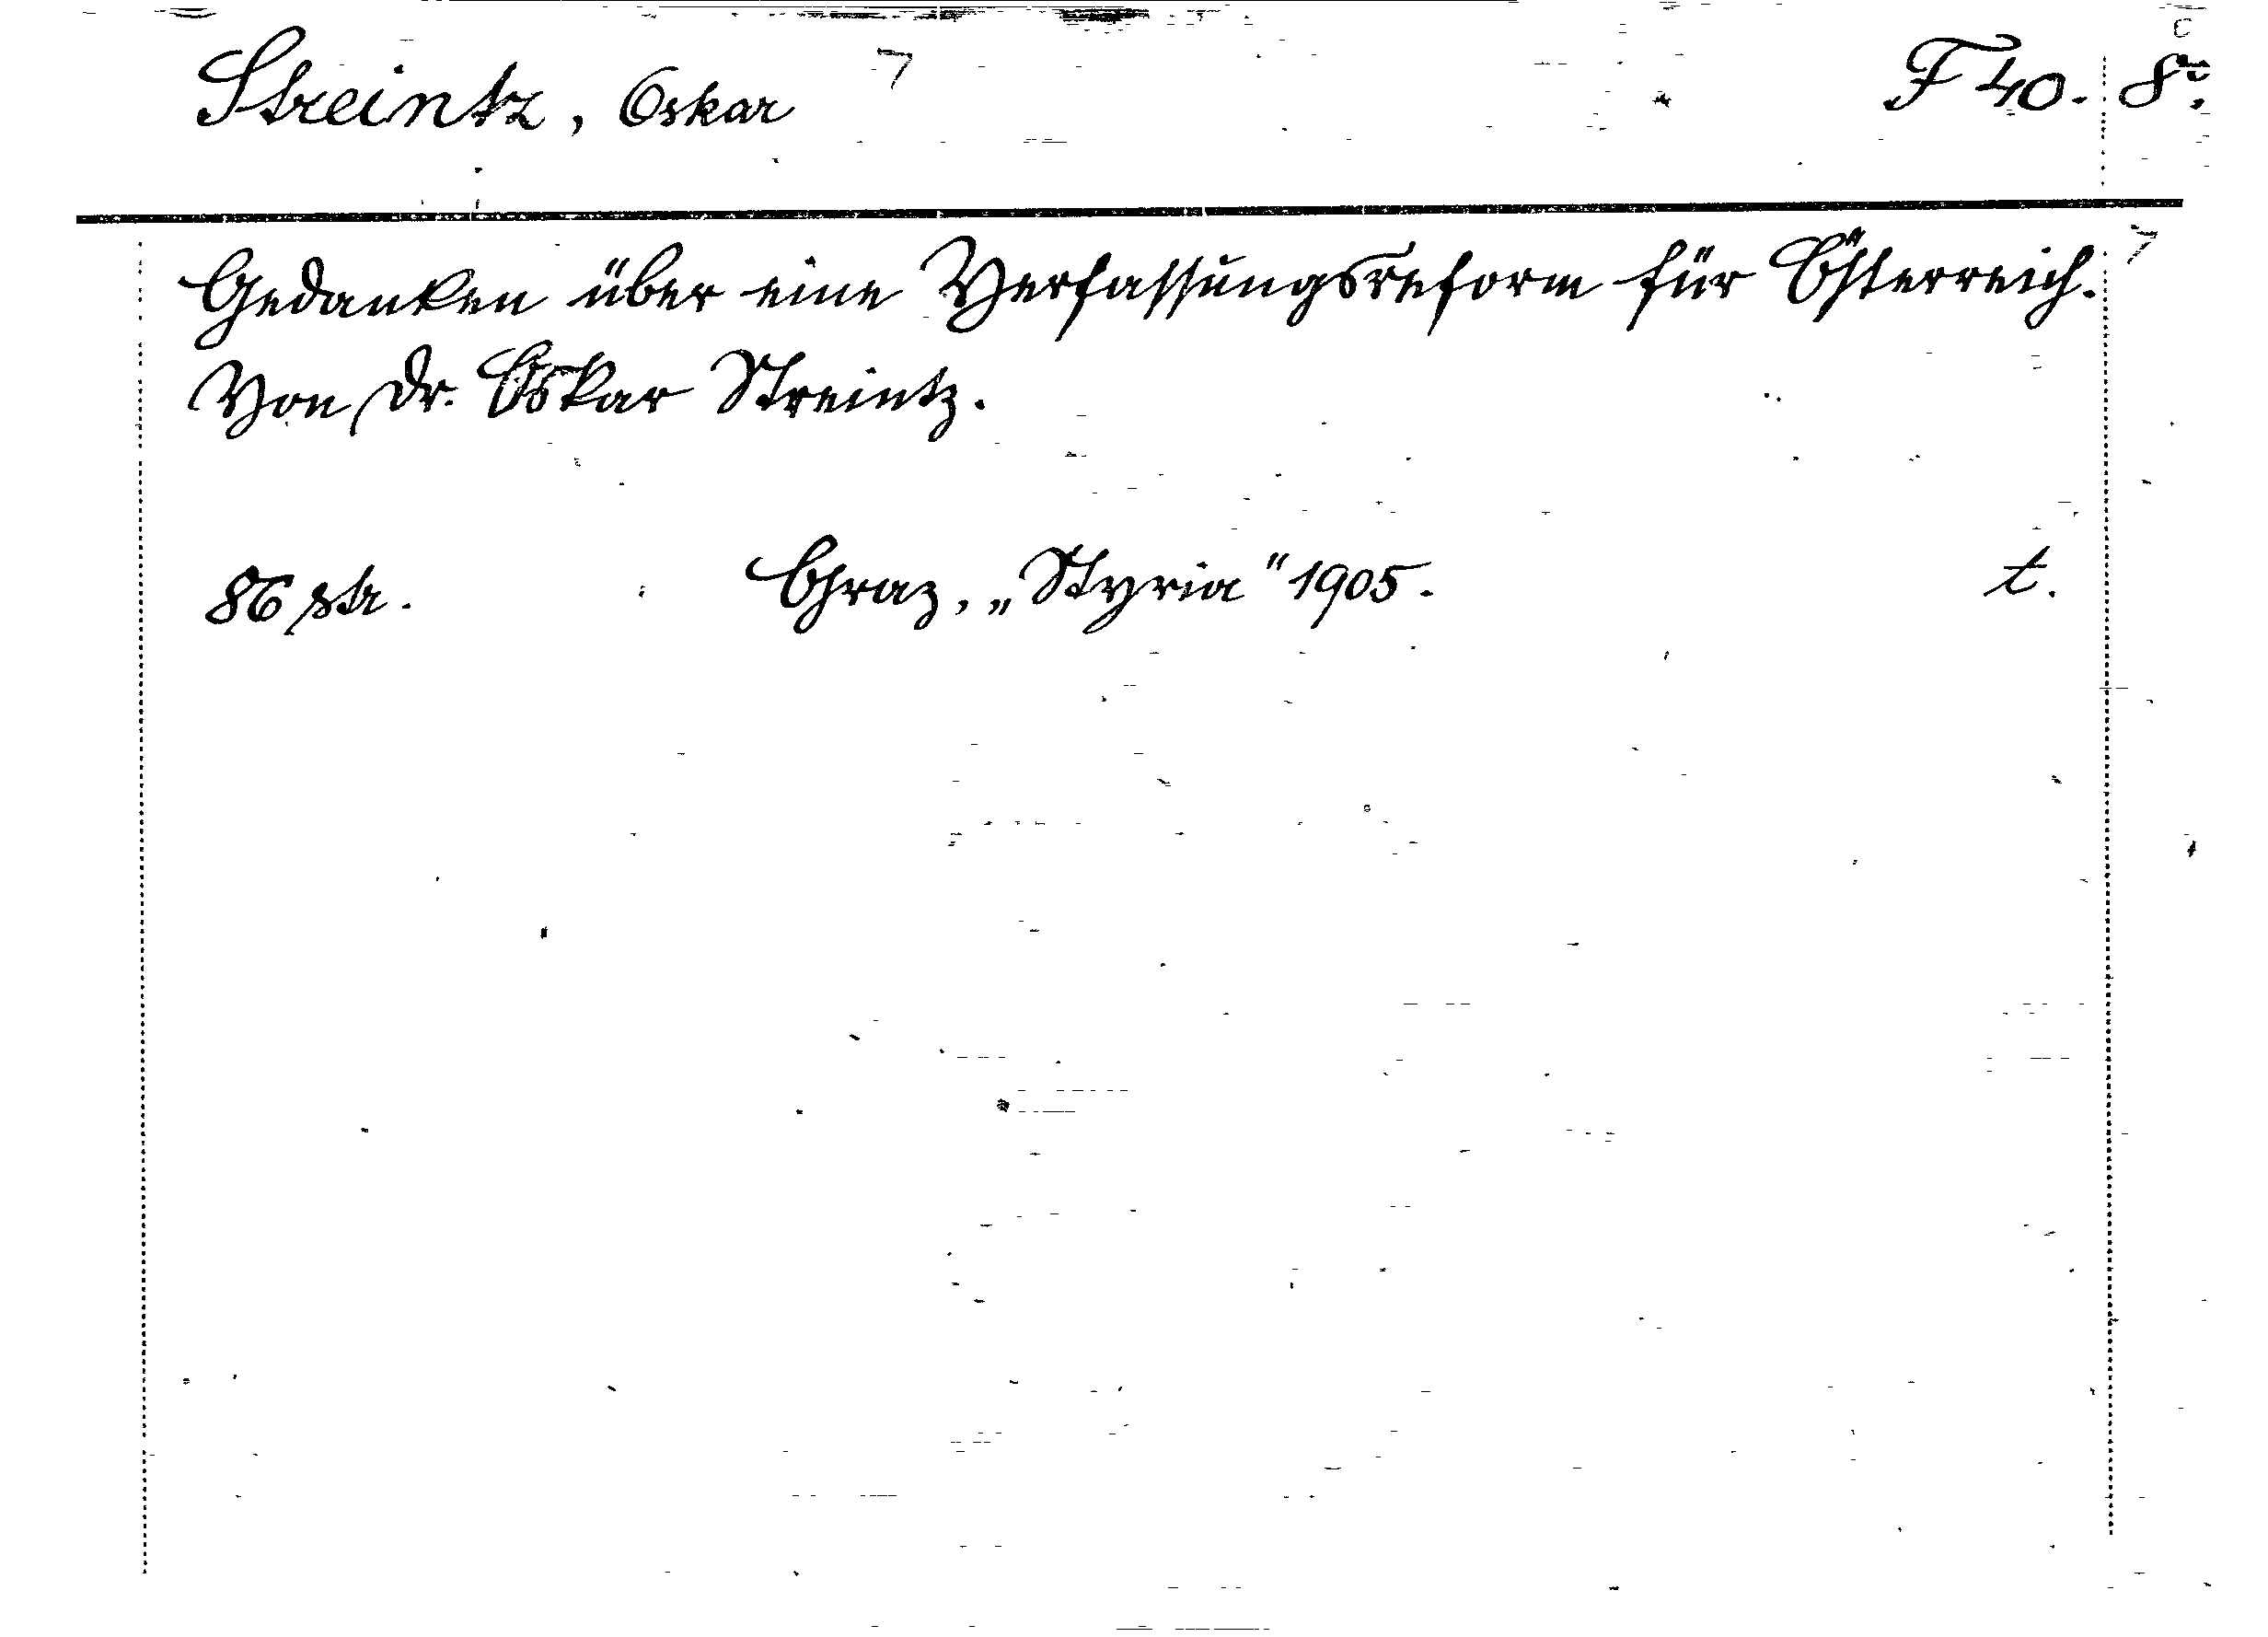 Streintz, Oskar
F 40. 8°.
Gedanken über eine Verfassungsreform für Österreich.
Von Dr. Oskar Streintz.
86 str. Graz, „Styria" 1905. t.